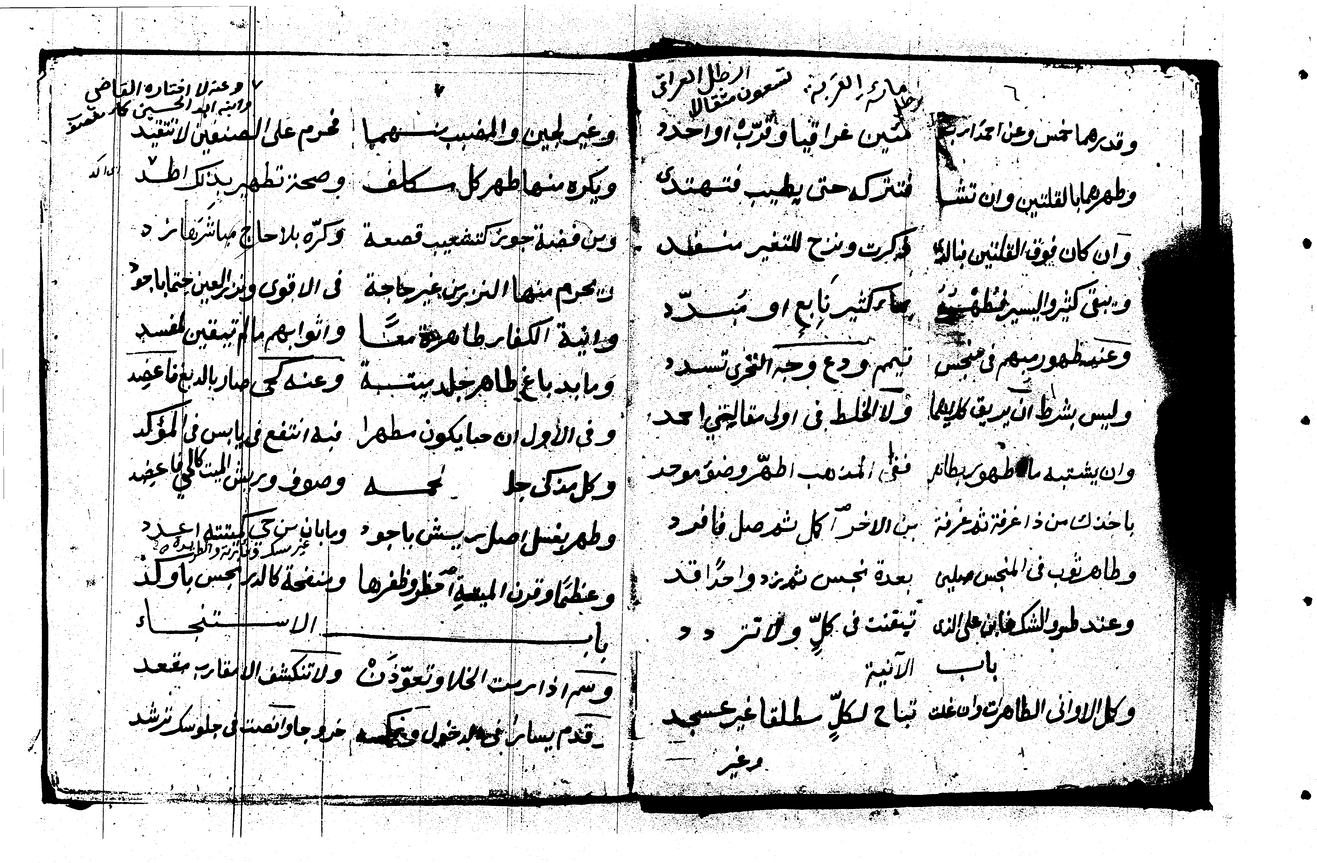 ٦
مائة رطل العراقية
الرطل العراقي تسعون مثقالا
وقدرهما خمس وعن احمد اربع مئين عراقيا وقربْ او احدد
وطهرهما بالقلتين وان تشا فتتركه حتى يطيب فتهتدي
وان كان فوق القلتين بنالذي ذكرت ونزح للتغير منفد
ويبقى كثير واليسير فطهره بماء كثير نابع او مُبدّد
وعند طهور مبهم في منجس تيمم ودع وجه التحري تسدد
وليس بشرط ان يريق كليهما ولا الخلط في اولى مقالتي احمد
وان يشتبه ماء طهور بطاهر ففي المذهب اطهر وضؤ موحد
باخذك من ذا غرفة ثم غرفة من الاخر اكل ثم صل فافرد
وطاهر ثوب في المنجس صلين بعدة نجس ثم زد واحدًا قد
وعند طرو الشك فابن على الذي تيقنت في كلٍّ ولا تتردد
باب الآنية
وكل الاواني الطاهرات وان غلت تباح لكلٍّ مطلقا غير عسجد
وغير
٧
وعنه لا اختاره القاضي
وابنه ابو الحسين
وغير لجين والمضبب منهما فحرم على الصنفين لا تتقيد
ويكره منها طهر كل مكلف وصحة تطهير بذلك اطد
ومن فضة جوز كتضبيب قصعة وكره بلا حاج مباشرها زد
ويحرم منها النزر من غير حاجة في الاقوى ونزر العين حتما باجود
وانية الكفار طاهرة معًا واثوابهم مالم تيقين لمفسد
وما بدباغ طاهر جلد ميتة وعنه كحي صار بالدبغ فاعضد
وفي الأول ان حبا يكون مطهرا فبه انتفع في يابس في المؤكد
وكل مذكى جلـ ـحه وصوف وريش الميت كالحي فاعضد
وطهر بغسل اصل ريش باجود وما بان من حي كميتته اعدد
غير مسك وفارته والطريدة
وعظمًا وقرن الميتة احظر وظفرها ومنفحة كالدر نجس باوكد
باب الاستنجاء
وسم اذا رمت الخلا وتعوّذَنْ ولا تنكشف الا مقارب مقعد
وقدم يسارا في الدخول وعكسه خروجا وانصت في جلوسك ترشد